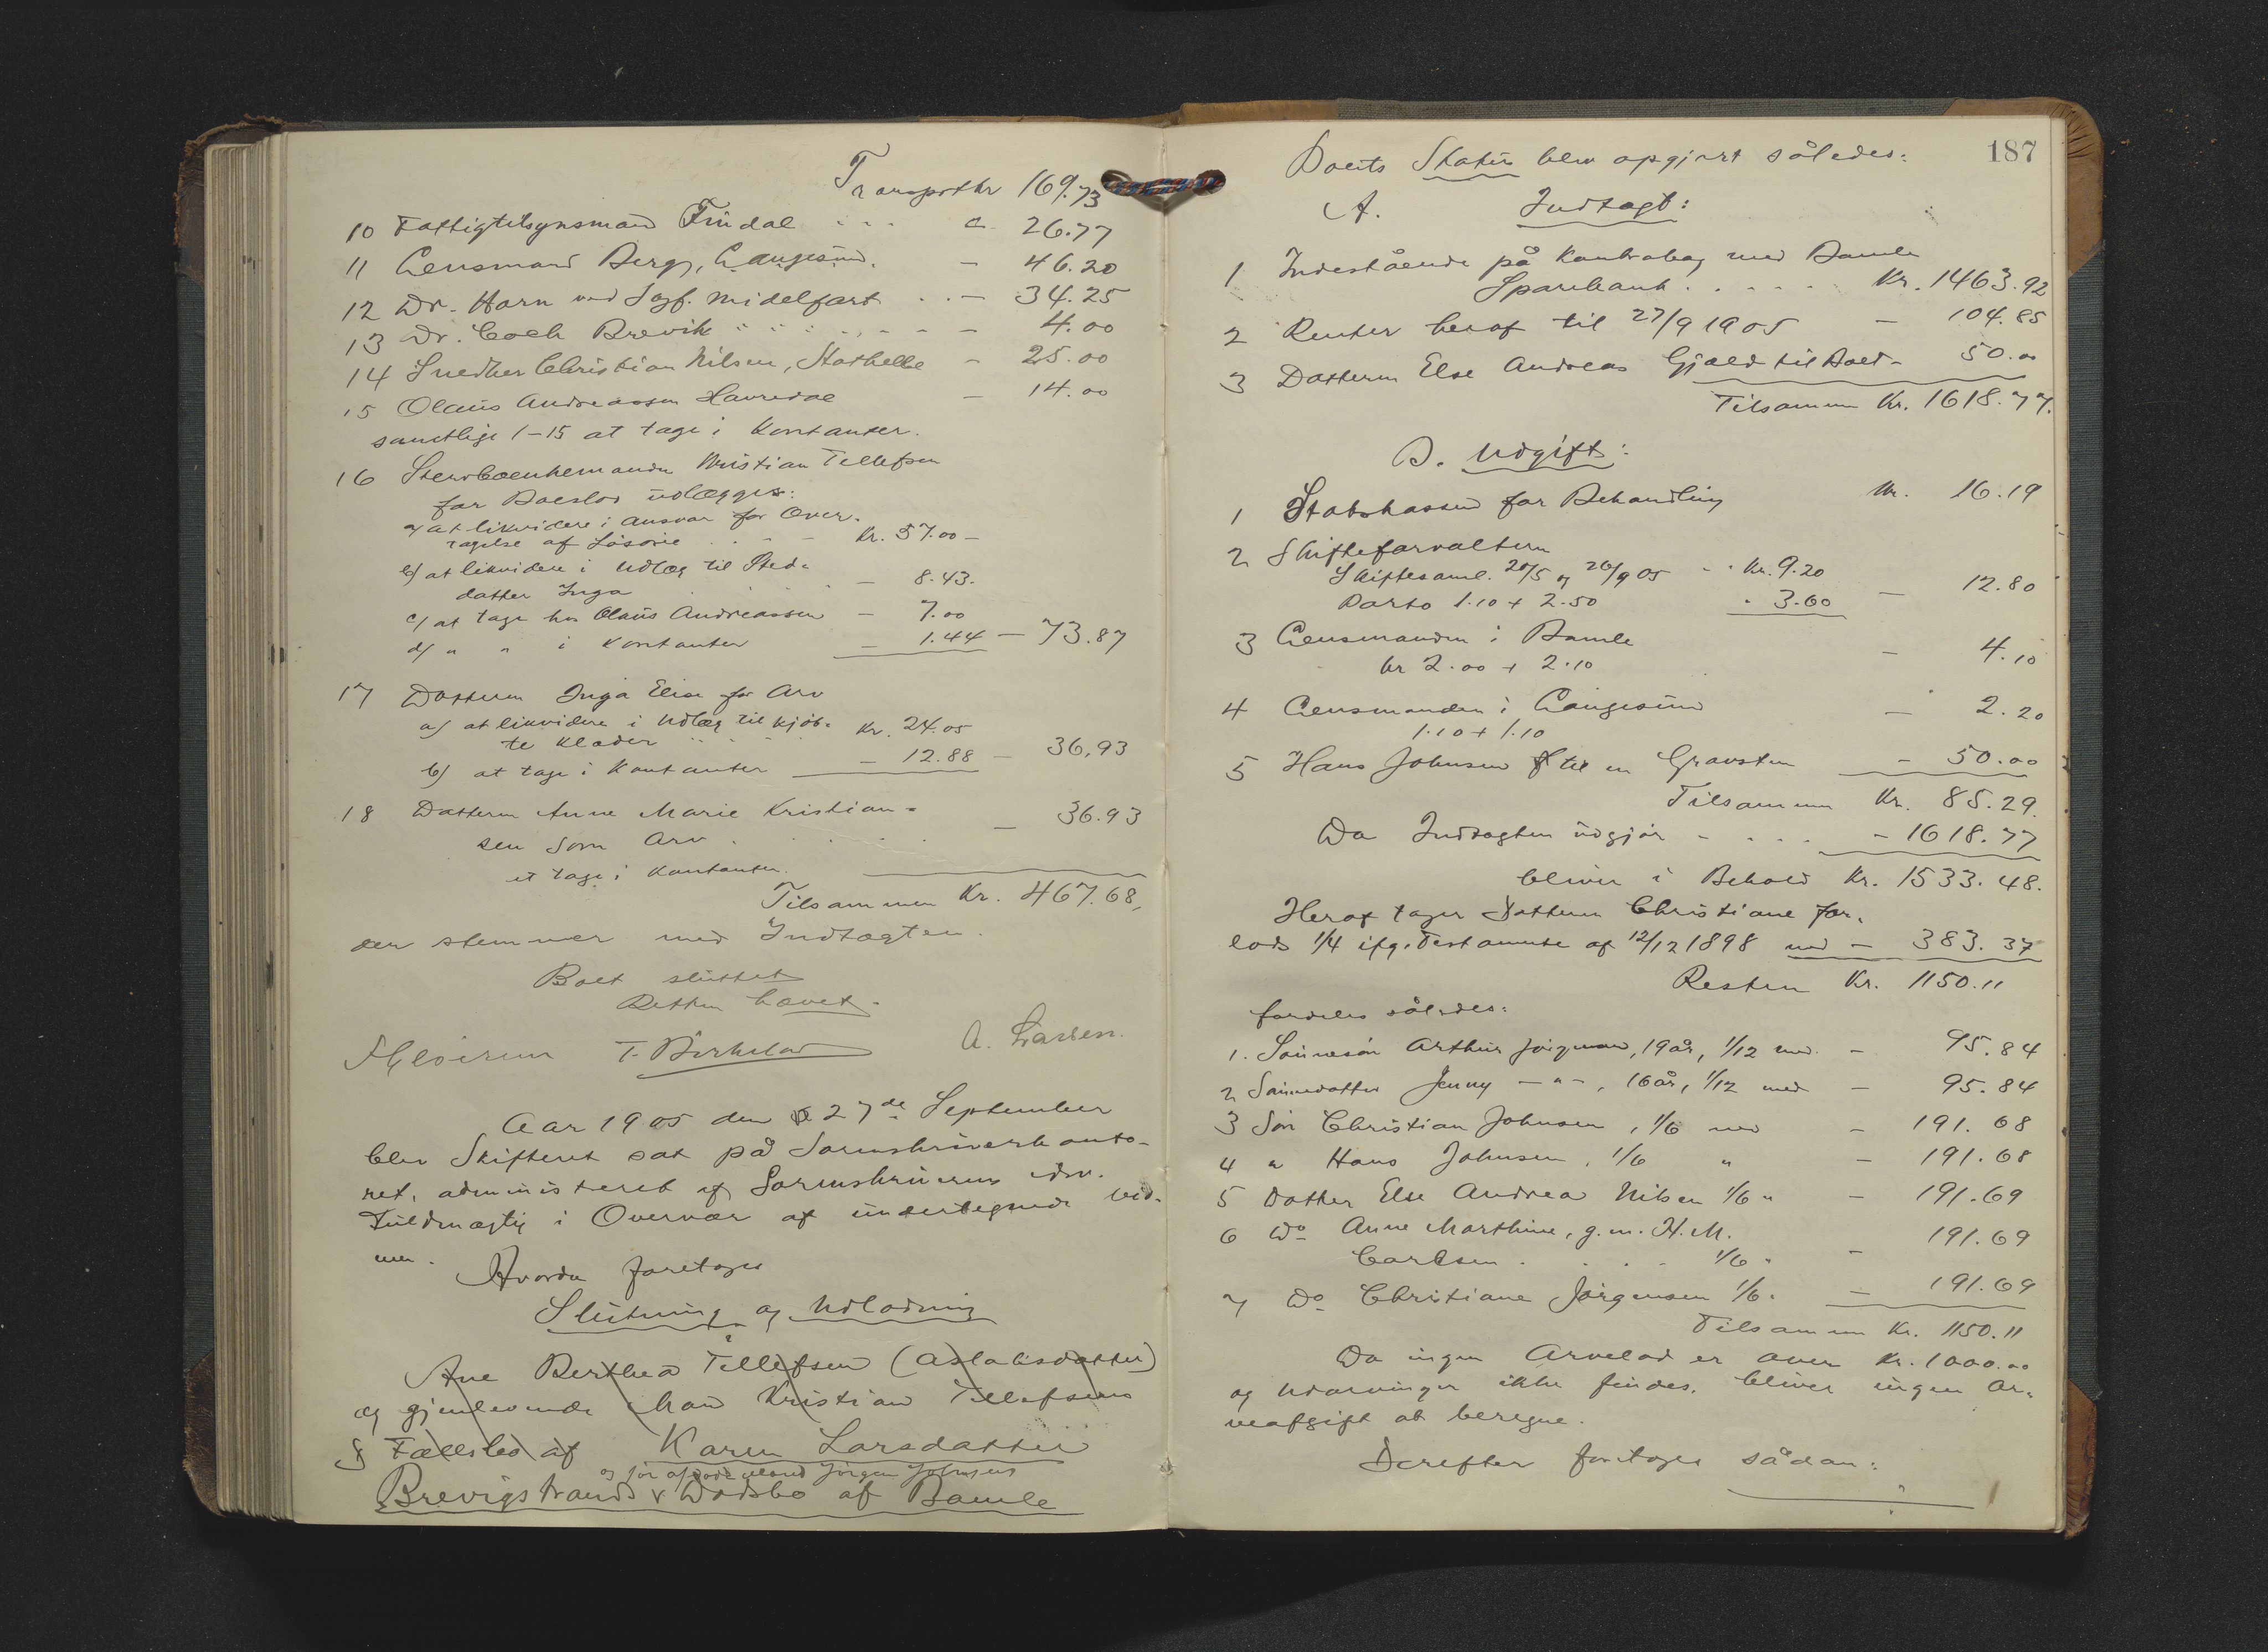 Transport kr 169.73
10 Fattigtilsynsmand Findal . . . " 26.77
11 Lensmand Berg, Langesund. — 46.20
12 Dr. Horn ved Sagf. Midelfart . . — 34.25
13 Dr. Coch Brevik " " " — — — 4.00
14 Snedker Christian Nilsen, Stathelle — 25.00
15 Olaus Andreassen Havredal — 14.00
samtlige 1-15 at tage i Kontanter.
16 Stervboenkemanden Kristian Tellefsen
for Boeslod udlægges:
a/ at likvidere i Ansvar for Over-
tagelse af Løsøre . . - Kr. 57.00 -
b/ at likvidere i Udlæg til Sted-
datter Inga . . — 8.43.
c/ at tage hos Olaus Andreassen — 7.00
d/ " " i Kontanter — 1.44 — 73.87
17 Datteren Inga Elise for Arv
a/ at likvidere i Udlæg til kjöb-
te klæder . . . . Kr. 24.05
b/ at tage i Kontanter — 12.88 — 36,93
18 Datteren Anne Marie Kristian-
sen som Arv . . . . — 36.93
at tage i Kontanter.
Tilsammen Kr. 467.68,
der stemmer med Indtægten.
Boet sluttet
Retten hævet.
T. Birkeland A. Larsen.
Aar 1905 den 27de September
blev Skifteret sat på Sorenskriverkonto-
ret, administreret af Sorenskriverens edsv.
Fuldmægtig i Overvær af undertegnede Vid-
ner.
Hvorda foretoges
Slutning og Udlodning
i
Ane Berthea Tellefsen (Aslaksdatter)
og gjenlevende Mand Kristian Tellefsens
Fællesbo af Karen Larsdatter
og før afdöde Mand Jörgen Johnsens
Brevigstrands v Dødsbo af Bamle
187
Boets Status blev opgjort således:
A. Indtægt:
1 Indestående på Kontrabog med Bamle
Sparebank . . . . . . Kr. 1463.92
2 Renter heraf til 27/9 1905 — 104.85
3 Datteren Else Andreas Gjæld til Boet - 50.00
Tilsammen Kr. 1618.77.
B. Udgift:
1 Statskassen for Behandling Kr. 16.19
2 Skifteforvalteren
Skiftesaml. 20/5 og 26/9 05 . . Kr. 9.20
Porto 1.10 + 2.50 . 3.60 — 12.80
3 Lensmanden i Bamle
kr 2.00 + 2.10 — 4.10
4 Lensmanden i Langesund — 2.20
1.10 + 1.10
5 Hans Johnsen til en Gravsten — 50.00
Tilsammen Kr. 85.29.
Da Indtægten udgjör - . . . - 1618.77
bliver i Behold Kr. 1533.48.
Heraf tager Datteren Christiane for-
lods 1/4 ifg. Testamente af 12/12 1898 med — 383.37
Resten Kr. 1150.11
fordeles således:
1. Sönnesön Arthur Jörgensen, 19 år, 1/12 med - 95.84
2 Sönnedatter Jenny — " — , 16 år, 1/12 med — 95.84
3 Sön Christian Johnsen, 1/6 med - 191.68
4 " Hans Johnsen, 1/6 " — 191.68
5 Datter Else Andrea Nilsen 1/6 " — 191.69
6 Do Anne Marthine, g. m. H. M.
Carlsen . . . . 1/6 " - 191.69
7 Do Christiane Jörgensen 1/6 " — 191.69
Tilsammen Kr. 1150.11
Da ingen Arvelod er over Kr. 1000.00
og Udarvinger ikke findes, bliver ingen Ar-
veafgift at beregne.
Derefter foretoges sådan: